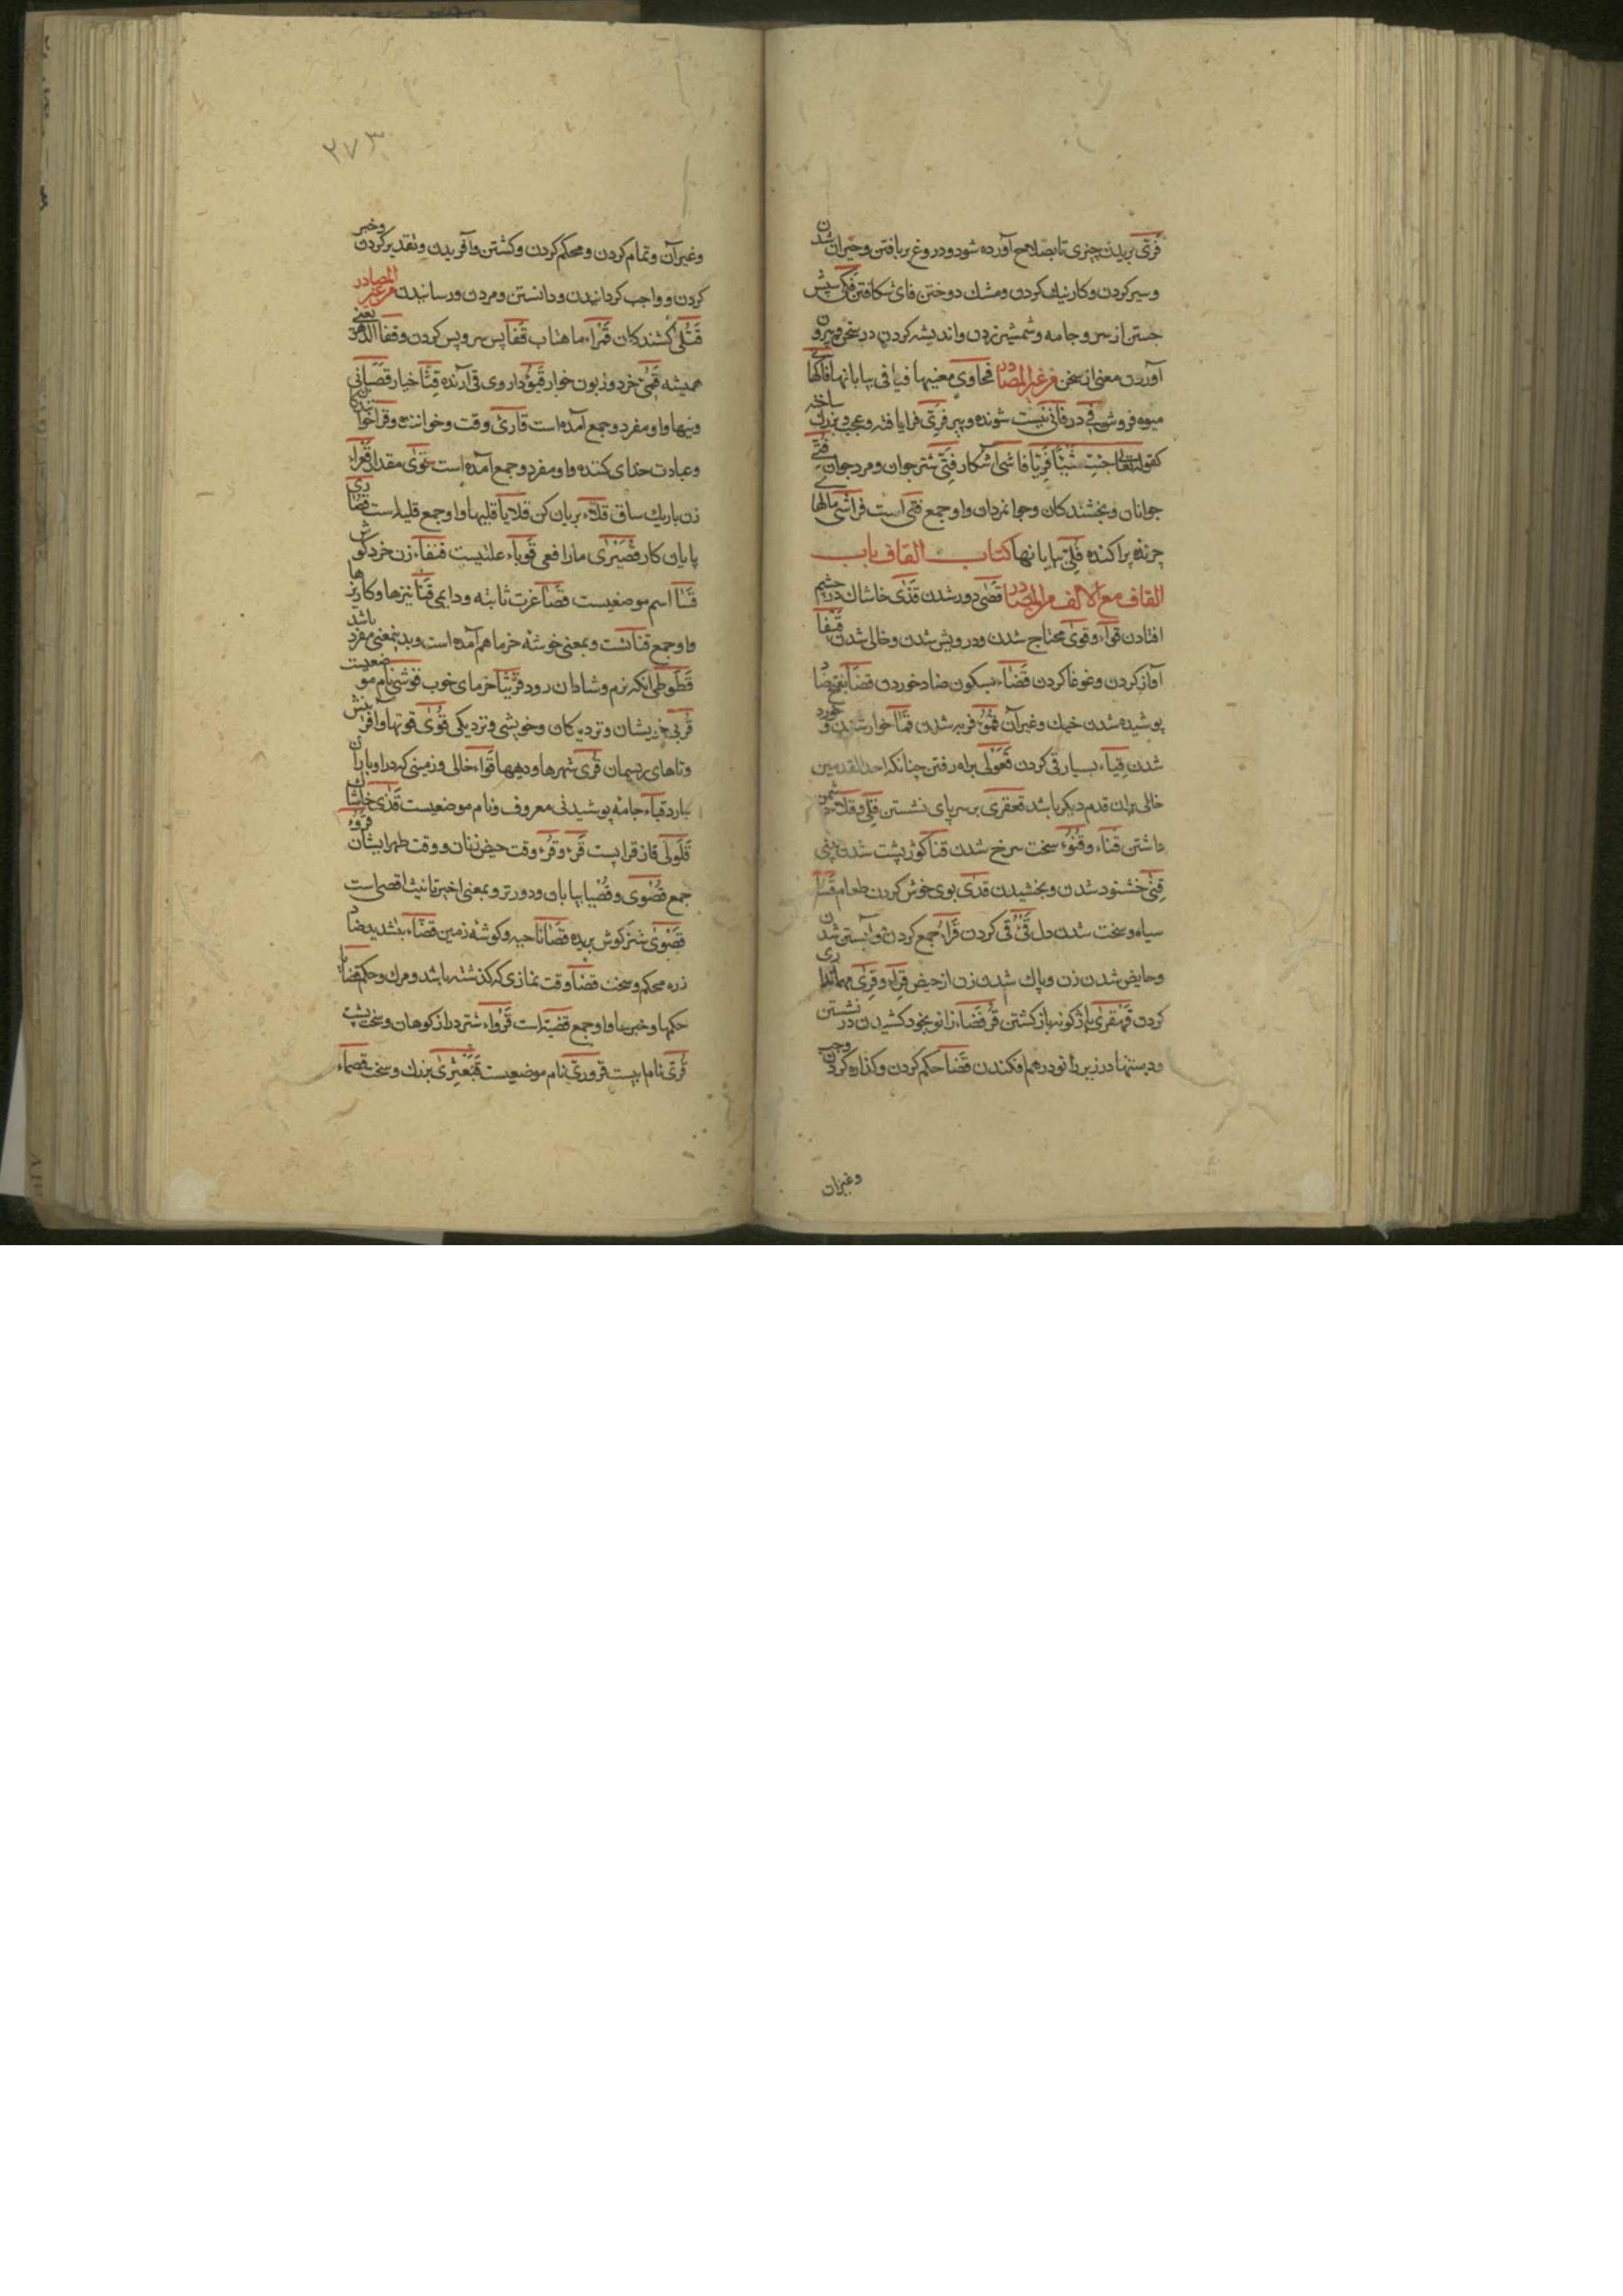 فری بریدن چیزی تا بصلاح آورده شود و دروغ بر بافتن و حیران شدن
و سیر کردن و کار نیک کردن و مشک دوختن فای شکافتن فلی سپش
جستن از سر و جامه و شمشیر زدن و اندیشه کردن در سخن و بیرون
آوردن معنی از سخن من غیر المصادر فحاوی معنیها فیافی بیابانها فاکهی
میوه فروش فی در فانی نیست شونده و پیر فری فرا یافته و عجب و بزرگ ساخته
کقوله تعالی جئت شیئا فریا فاشی آشکار فتی شتر جوان و مرد جوان فتی
جوانان و بخشندکان و جوانمردان و او جمع فتی است فراشی مالهای
چرنده پراکنده فلی بیابانها کتاب القاف باب
القاف مع الالف من المصادر قصی دور شدن قذی خاشاک در چشم
افتادن قواء و قوی محتاج شدن و درویش شدن و خالی شدن
آواز کردن و غوغا کردن قضاء بسکون ضاد خوردن قضا بفتح ضاد
پوسیده شدن خیک و غیر آن قموء فربه شدن قما خوار شدن و خورد
شدن قیاء بسیار قی کردن قعولی براه رفتن چنانکه احد القدمین
خالی بران قدم دیکر باشد قعفزی بر سر پای نشستن قلی و قلاء دشمن
داشتن قناء و قنوء سخت سرخ شدن قنا کوژپشت شدن بینی
قنی خشنود شدن و بخشیدن قدی بوی خوش کردن طعام قسا
سیاه و سخت شدن دل قیء قی کردن قراء جمع کردن و آبستن شدن
و حایض شدن زن و پاک شدن زن از حیض قراء و قری مهمانداری
کردن قهقری باژکونه باز کشتن قرفصاء زانو بخود کشیدن در نشستن
و دستها در زیر زانو در هم افکندن قضا حکم کردن و کذاره کردن وجب
وغیران
۲۷۳
وغیر آن و تمام کردن و محکم کردن و کشتن و آفریدن و تقدیر کردن و خبر
کردن و واجب کردانیدن و دانستن و مردن و رسانیدن من غیر المصادر
قتلی کشندکان قمراء ماهتاب قفا پس سر و پس کردن و قفا الدهر یعنی
همیشه قمیء خرد و زبون خوار قیوء داروی قی آرنده قثا خیار قصبا نی
و نیها و او مفرد و جمع آمده است قاریء وقت و خواننده و قرا خوانندکان
و عبادت خدای کننده و او مفرد و جمع آمده است قوی مقدار قعراء
زن باریک ساق قلاء بریان کن قلایا قلیها و او جمع قلیه است
پایان کار قصیری مار افعی قوباء علتیست قنفاء زن خرد کوش
قسا اسم موضعیست قضا غرت ثابته و دایمی قنا نیزها و کاریزها
و او جمع قنا تست و بمعنی خوشه خرما هم آمده است و بدینمعنی مفرد باشد
قطوطی آنکه نرم و شادان رود قریثا خرمای خوب قوشی نام موضعیست
قربی خویشان و نزدیکان و خویشی و نزدیکی قوی قوتها و آفرینش
و تاهای ریسمان قری شهرها و دهها قواء خالی و زمینی که در او باران
بارد قباء جامه پوشیدنی معروف و نام موضعیست قذی خاشاک
قلولی قاز قرا پست قرء و قرء وقت حیض زنان و وقت طهر ایشان قروء
جمع قصوی و قصیا بیابان و دورتر و بمعنی اخیر تانیث اقصی است
قصوی شتر کوش بریده قصا ناحیه و کوشه زمین قضاء بتشدید ضاد
زره محکم و سخت قضا وقت نمازی که کذشته باشد و مرک و حکم قضایا
حکمها و خبرها و او جمع قضیه است قرواء شتر دراز کوهان و سخت پشت
قری نام آبیست قروری نام موضعیست قبعثری بزرک و سخت قصماء